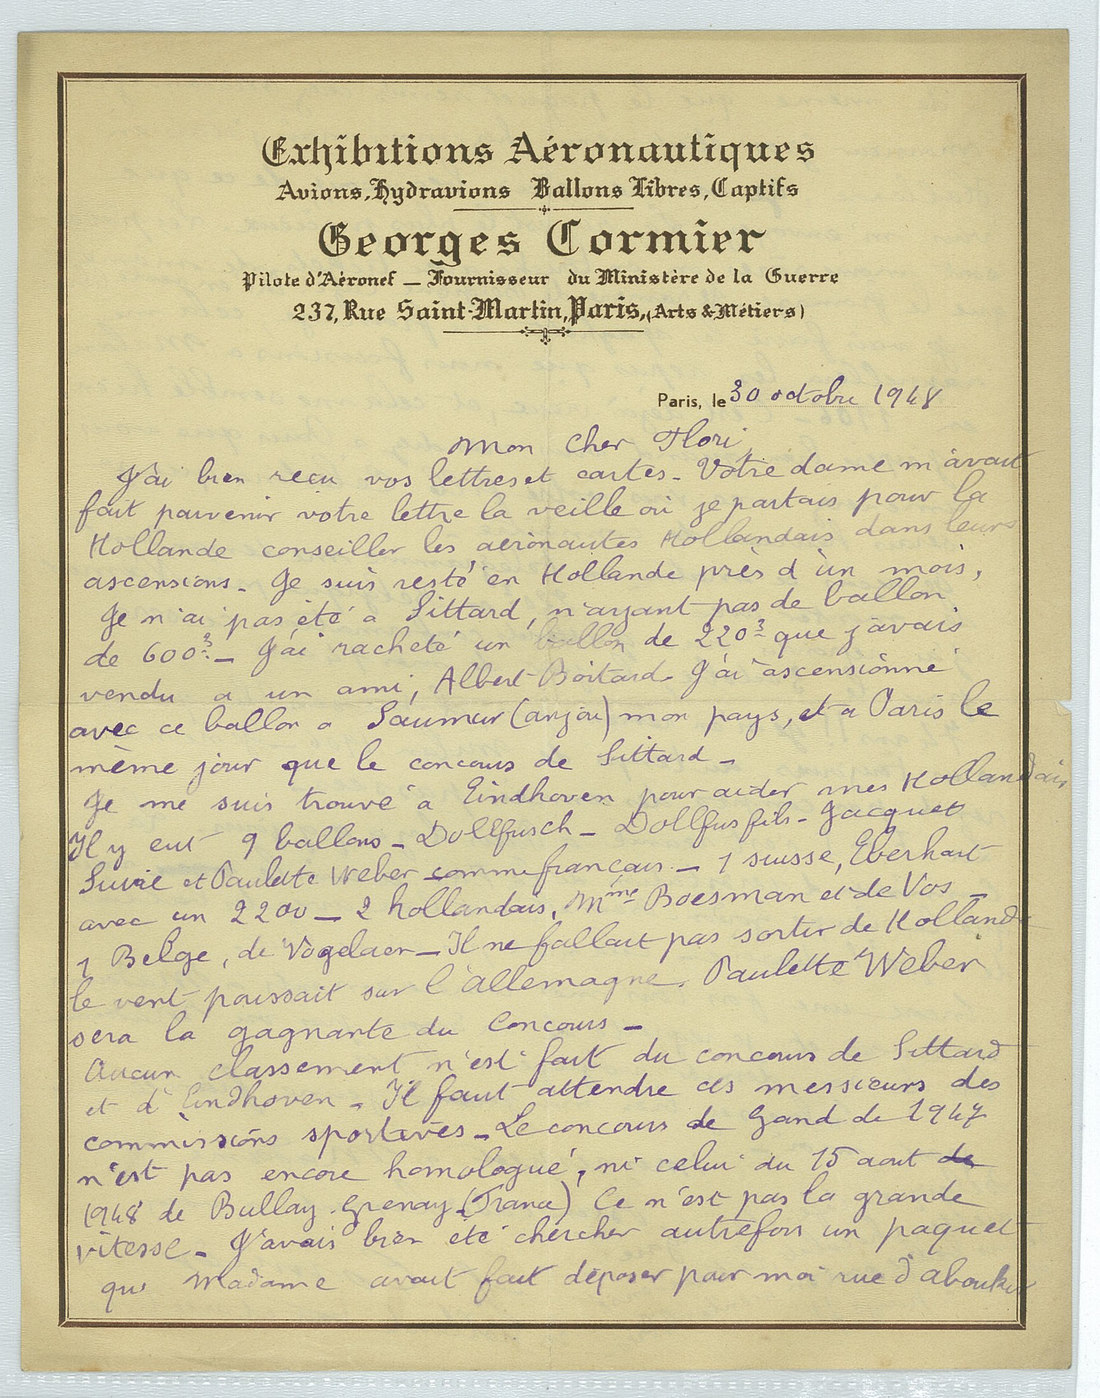 Exhibitions Aéronautiques
Avions, Hydravions Ballons Libres, Captifs
Georges Cormier
Pilote d'Aéronef — Fournisseur du Ministère de la Guerre
237, Rue Saint-Martin, Paris, (Arts & Métiers)
Paris, le 30 octobre 1948
Mon Cher Flori
J'ai bien reçu vos lettres et cartes - Votre dame m'avait
fait parvenir votre lettre la veille où je partais pour la
Hollande conseiller les aéronautes Hollandais dans leurs
ascensions - Je suis resté en Hollande près d'un mois,
Je n'ai pas été a Sittard, n'ayant pas de ballon
de 600³ - J'ai racheté un ballon de 220³ que j'avais
vendu a un ami, Albert Boitard - J'ai ascensionné
avec ce ballon a Saumur (anjou) mon pays, et a Paris le
même jour que le concours de Sittard -
Je me suis trouvé a Eindhoven pour aider mes Hollandais
Il y eut 9 ballons - Dollfusch - Dollfus fils - Jacquet
Suvie et Paulette Weber comme français - 1 suisse, Eberhart
avec un 2200 - 2 hollandais, Mme Boesman et de Vos -
1 Belge, de Vogelaer - Il ne fallait pas sortir de Holland
le vent poussait sur l'allemagne. Paulette Weber
sera la gagnante du Concours -
Aucun classement n'est fait du concours de Sittard
et d'Eindhoven - Il faut attendre ces messieurs des
commissions sportives - Le concours de Gand de 1947
n'est pas encore homologué, ni celui du 15 aout de
1948 de Bullay-Grenay (France) Ce n'est pas la grande
vitesse - J'avais bien été chercher autrefois un paquet
que Madame avait fait déposer pour moi rue d'aboukir